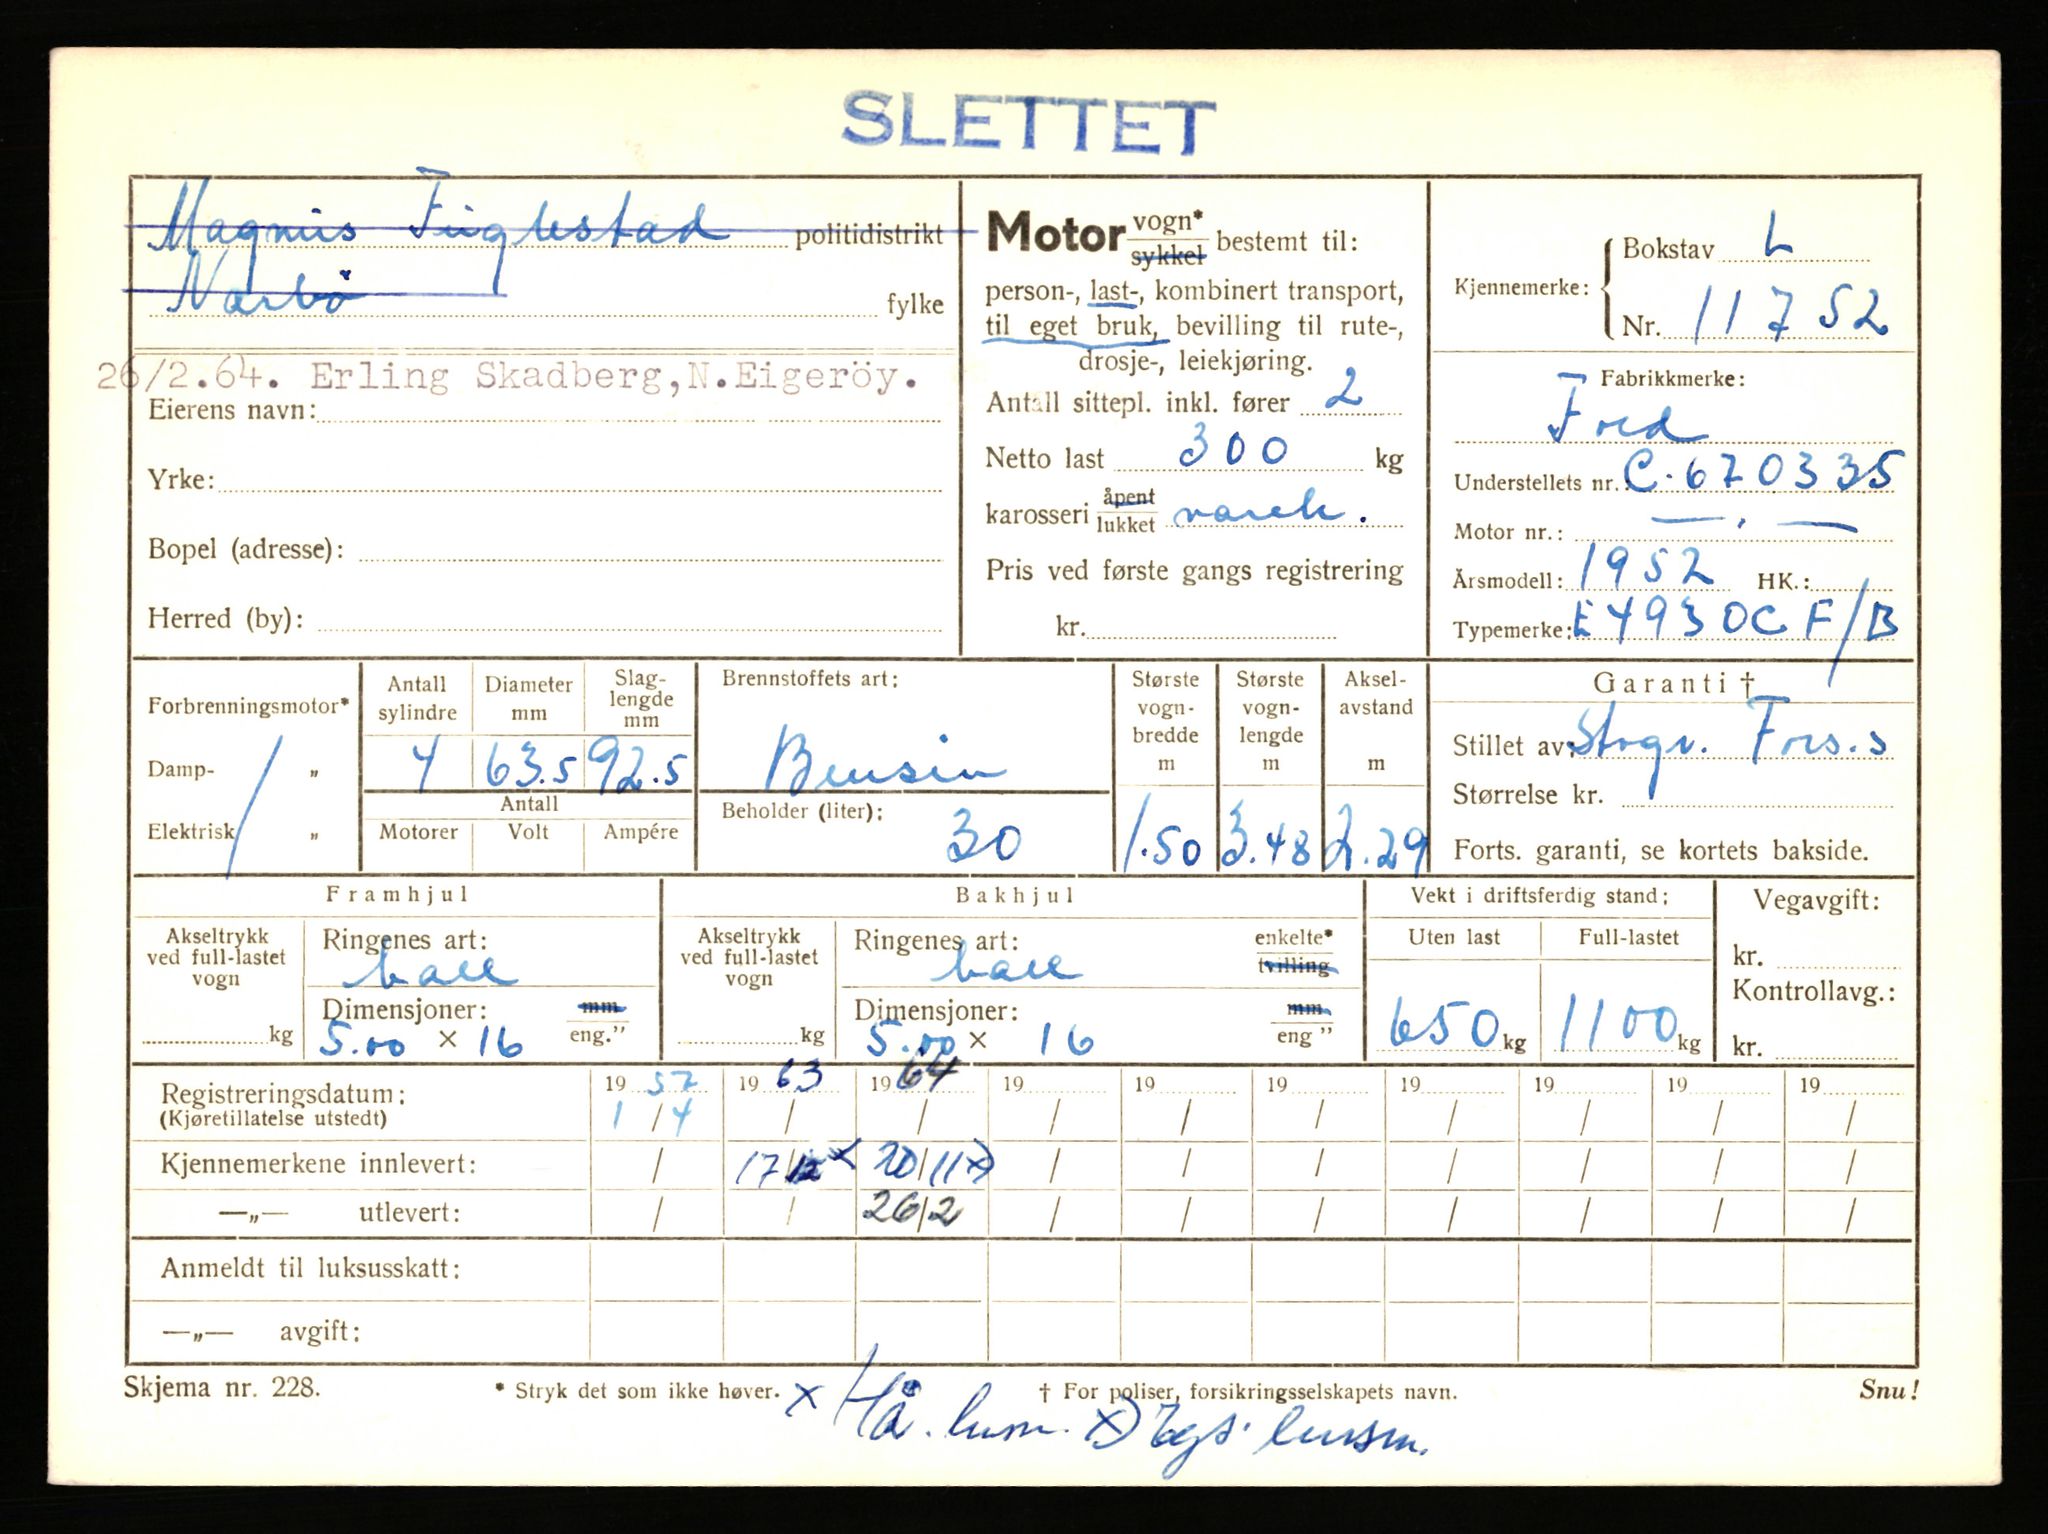 SLETTET
Magnus Fuglestad politidistrikt
Nærbö fylke
26/2.64. Erling Skadberg, N.Eigeröy.
Eierens navn:
Yrke:
Bopel (adresse):
Herred (by):
Motor vogn* sykkel bestemt til:
person-, last-, kombinert transport,
til eget bruk, bevilling til rute-,
drosje-, leiekjøring.
Antall sittepl. inkl. fører 2
Netto last 300 kg
karosseri åpent lukket varek.
Pris ved første gangs registrering
kr.
Kjennemerke: Bokstav L
Nr. 11752
Fabrikkmerke:
Ford
Understellets nr.: C.670335
Motor nr.: — . —
Årsmodell: 1952 HK.:
Typemerke: E493OCF/B
Forbrenningsmotor*
Damp- „
Elektrisk „
Antall sylindre Diameter mm Slag-lengde mm
4 63.5 92.5
Antall
Motorer Volt Ampére
Brennstoffets art:
Bensin
Beholder (liter):
30
Største vogn-bredde m
1.50
Største vogn-lengde m
3.48
Aksel-avstand m
2.29
Garanti †
Stillet av: Fors.s
Størrelse kr.
Forts. garanti, se kortets bakside.
Framhjul
Akseltrykk ved full-lastet vogn
kg
Ringenes art:
ball
Dimensjoner: mm
5.00 × 16 eng."
Bakhjul
Akseltrykk ved full-lastet vogn
kg
Ringenes art: enkelte*
ball tvilling
Dimensjoner: mm
5.00 × 16 eng"
Vekt i driftsferdig stand:
Uten last Full-lastet
650 kg 1100 kg
Vegavgift:
kr.
Kontrollavg.:
kr.
Registreringsdatum: 1957 1963 1964 19 19 19 19 19 19 19
(Kjøretillatelse utstedt) 1/4 / / / / / / / / /
Kjennemerkene innlevert: / 17/12 x 20/11 x) / / / / / / /
—„— utlevert: / / 26/2 / / / / / / /
Anmeldt til luksusskatt:
—„— avgift:
Skjema nr. 228. * Stryk det som ikke høver. † For poliser, forsikringsselskapets navn. Snu!
x Hå. lensm. x) lensm.